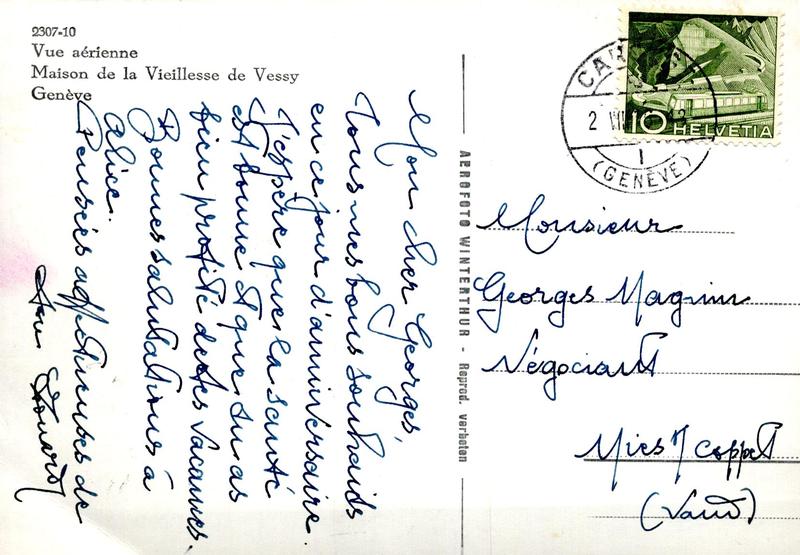 2307-10
Vue aérienne
Maison de la Vieillesse de Vessy
Genève
Mon cher Georges,
Tous mes bons souhaits
en ce jour d'anniversaire.
J'espère que la santé
est bonne et que tu as
bien profité de tes vacances.
Bonnes salutations à
Alice.
Pensées affectueuses de
AEROFOTO WINTERTHUR - Reprod. verboten
10 HELVETIA
2 VII
1
(GENÈVE)
Monsieur
Georges Magnin
Négociant
Mies s/ Coppet
(Vaud)